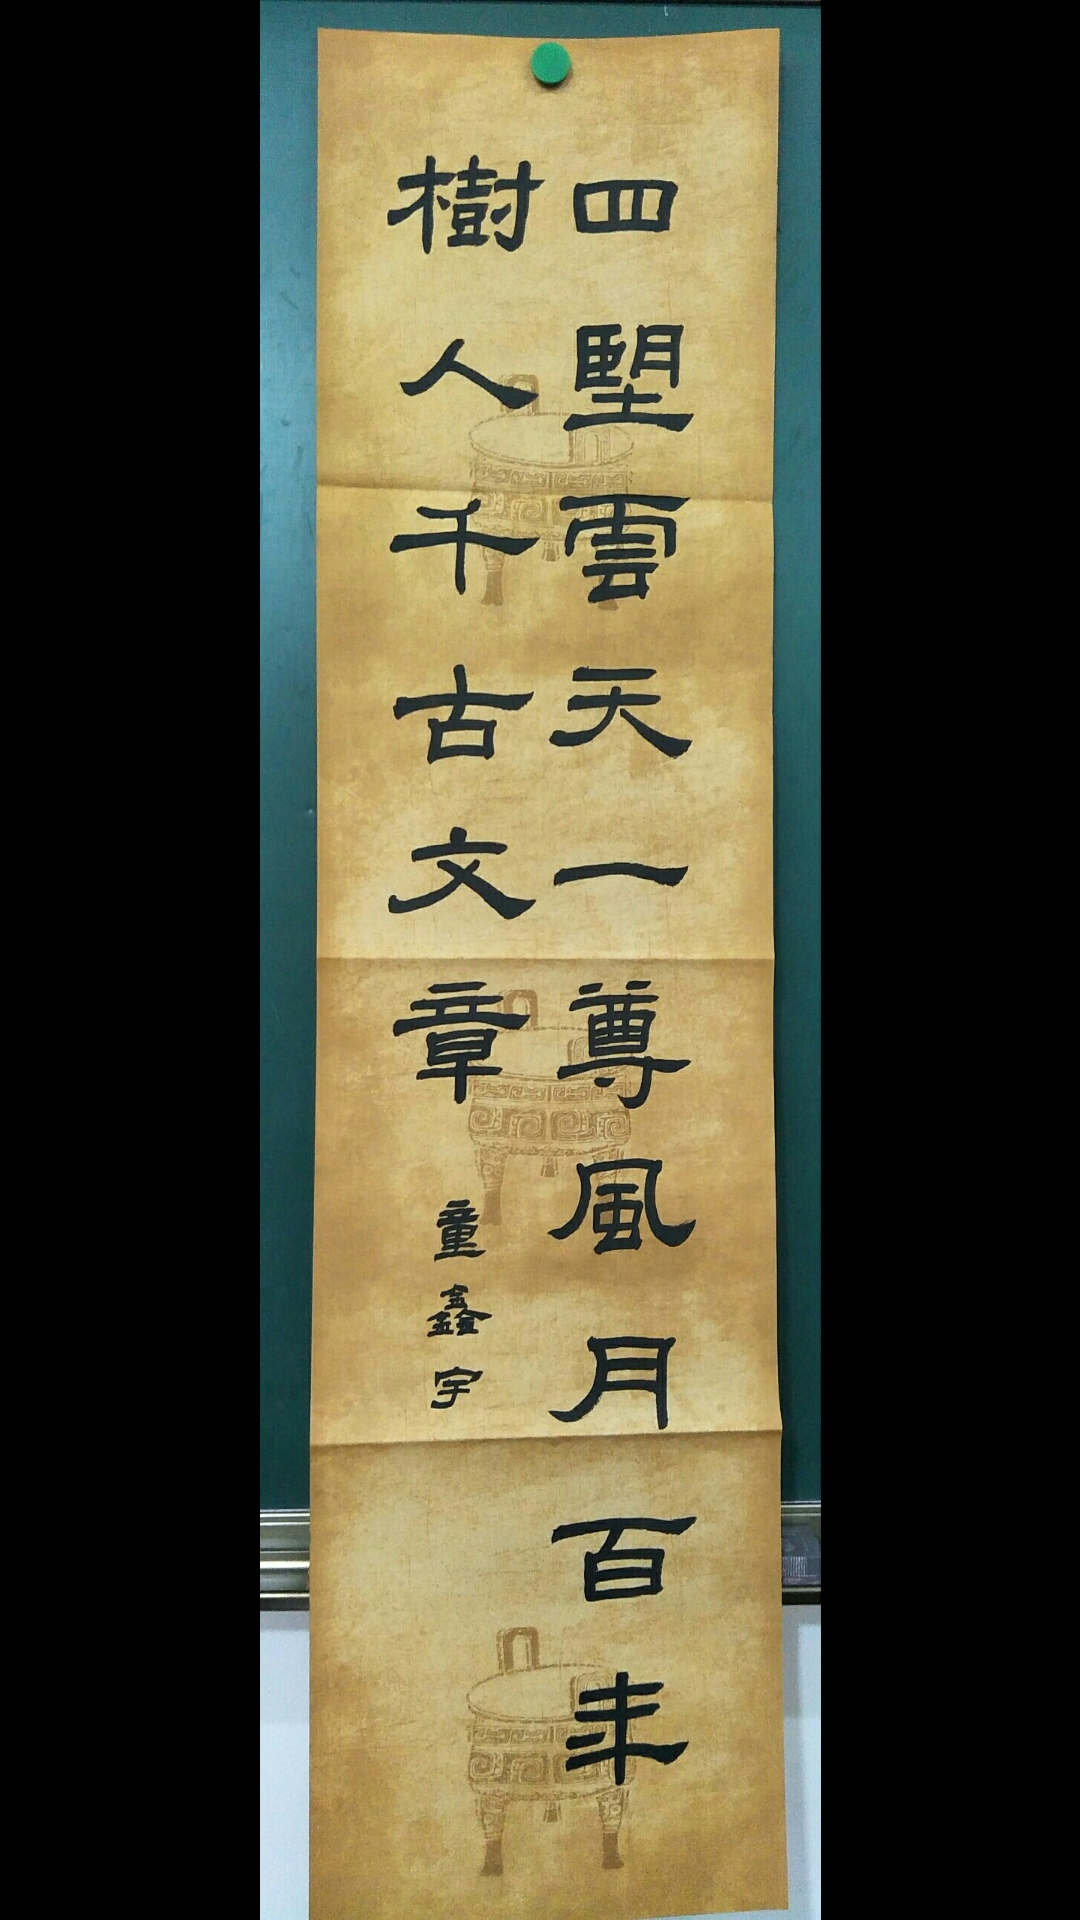 四朢雲天一尊風月百年
樹人千古文章
童鑫宇